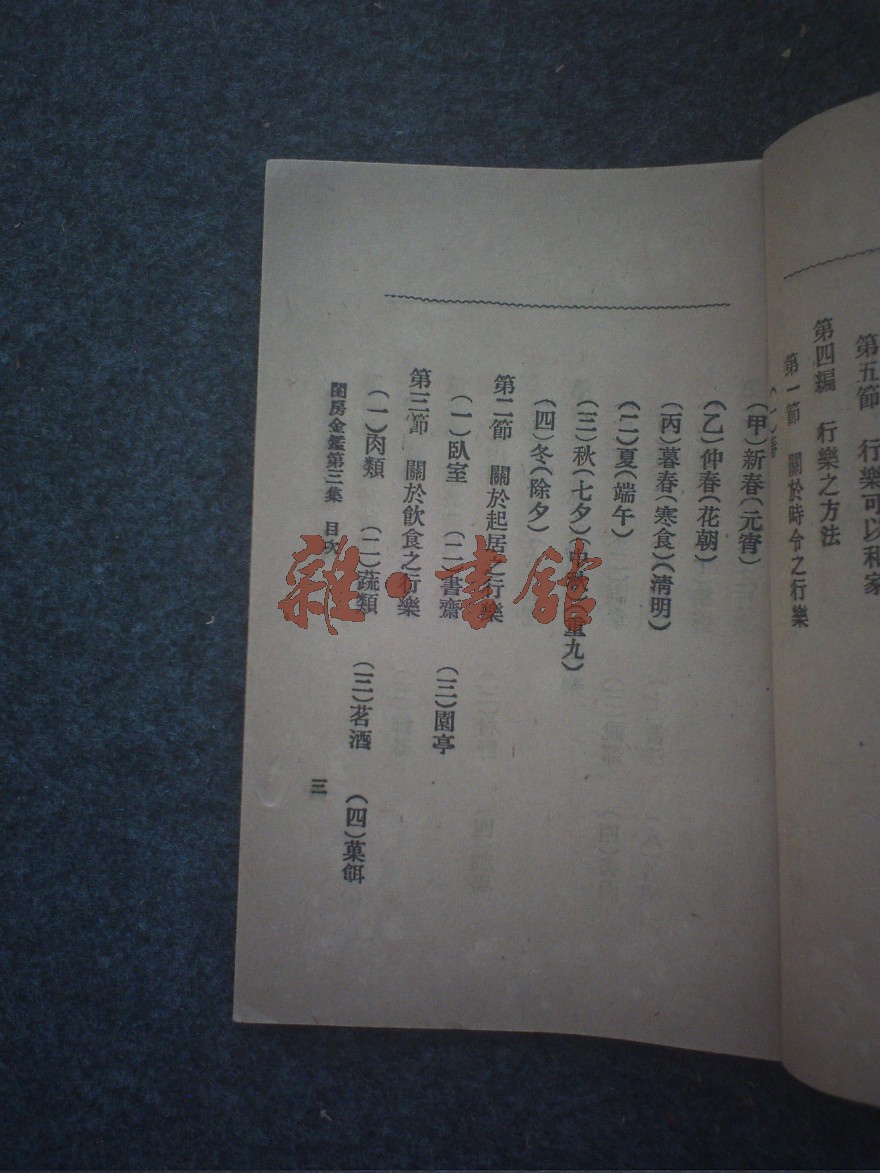 第五節　行樂可以和家
第四編　行樂之方法
第一節　關於時令之行樂
(一)春
(甲)新春(元宵)
(乙)仲春(花朝)
(丙)暮春(寒食)(清明)
(二)夏(端午)
(三)秋(七夕)(中秋)(重九)
(四)冬(除夕)
第二節　關於起居之行樂
(一)臥室　(二)書齋　(三)園亭
第三節　關於飲食之行樂
(一)肉類　(二)蔬類　(三)茗酒　(四)菓餌
閨房金鑑第三集　目次　三
雜·書館